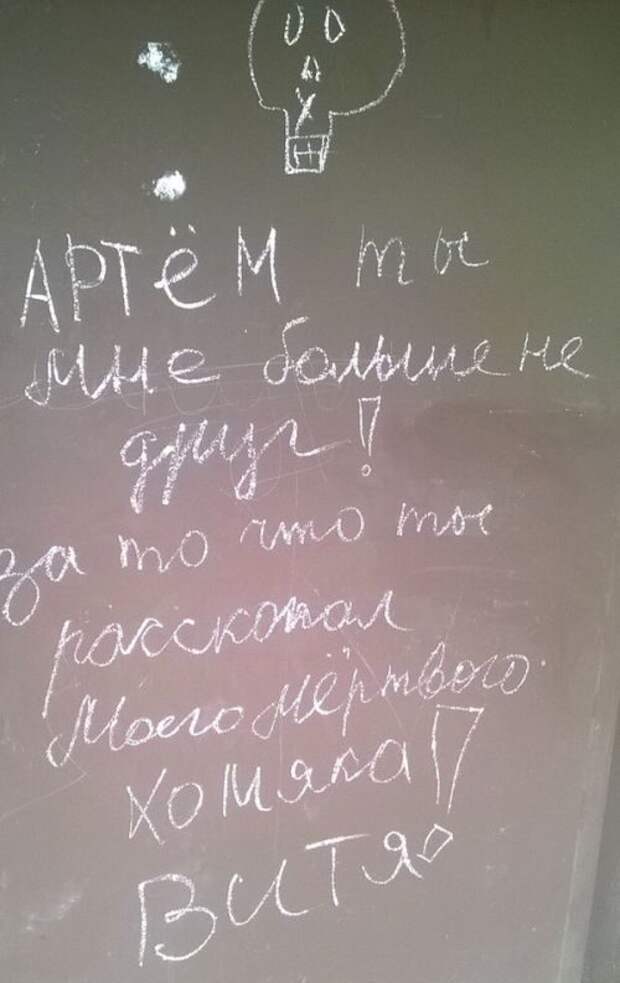 АРТЁМ ты
мне больше не
друг!
за то что ты
расскопал
Моего мёртвого
хомяка!
Витя